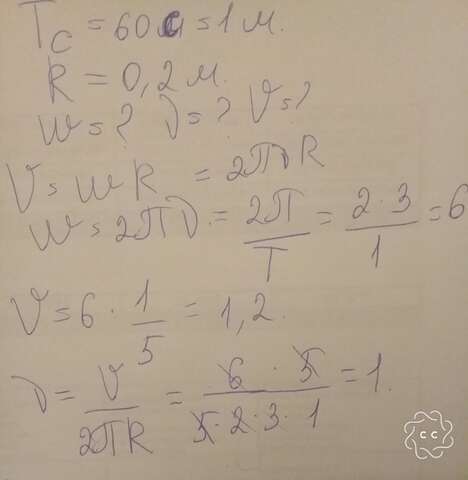 T_c = 60 c = 1 м.
R = 0,2 м.
ω = ? ν = ? V = ?
V = ωR = 2πνR
ω = 2πν = 2π/T = 2·3/1 = 6
V = 6 · 1/5 = 1,2.
ν = V/2πR = 6 · 5/5·2·3·1 = 1.
CC